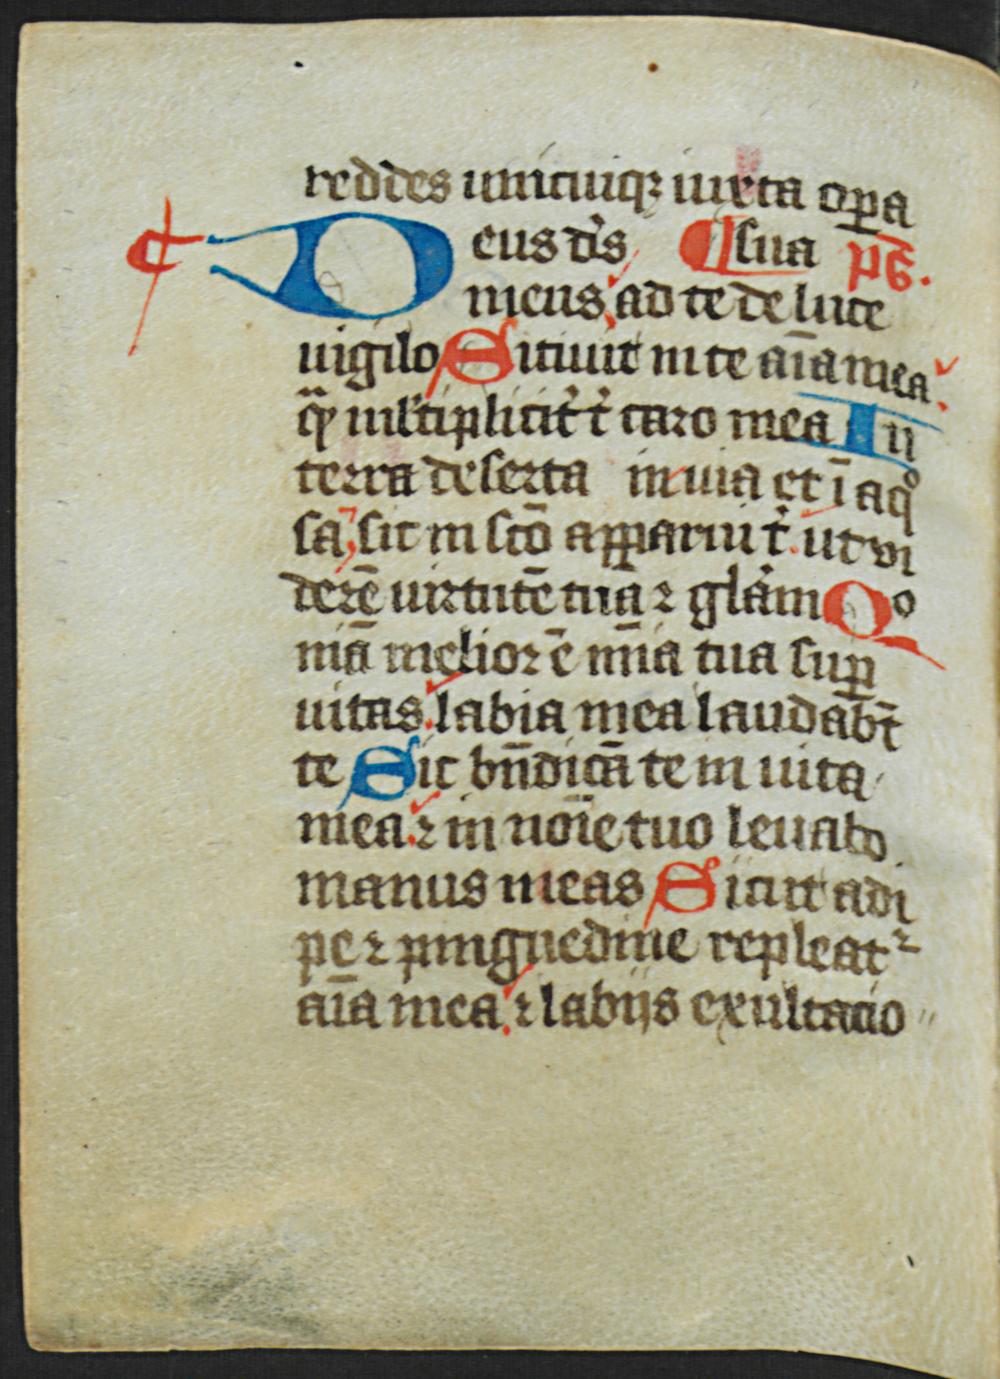 reddes unicuiqꝫ iuxta oꝑa
Deus ds̄ ¶ sua p̄s.
meus ad te de luce
uigilo Sitiuit in te aīa mea
qͣ ml̓tiplicit̓ t̓ caro mea In
terra deserta inuia et ī aqͦ
sa sic in sc̄o apparui t̓ ut vi
derē uirtutē tuā ⁊ glāꝫ Qo
niā melior ē mīa tua suꝑ
uitas labia mea laudabt̄
te Sic bn̄dicā te in uita
mea ⁊ in noīe tuo leuabo
manus meas Sicut adi
pe ⁊ pinguedine repleat᷑
aīa mea ⁊ labijs exultacio